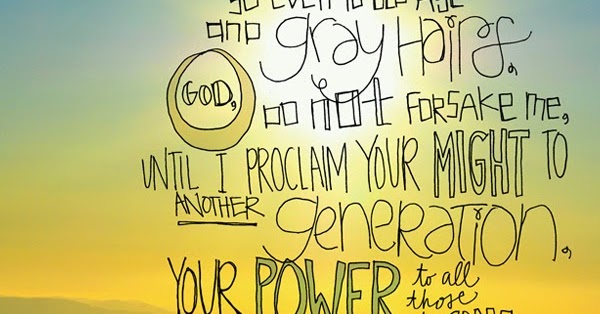 so even to old age
and gray hairs,
GOD, do not forsake me,
UNTIL I PROCLAIM YOUR MIGHT TO
ANOTHER generation,
YOUR POWER to all
those